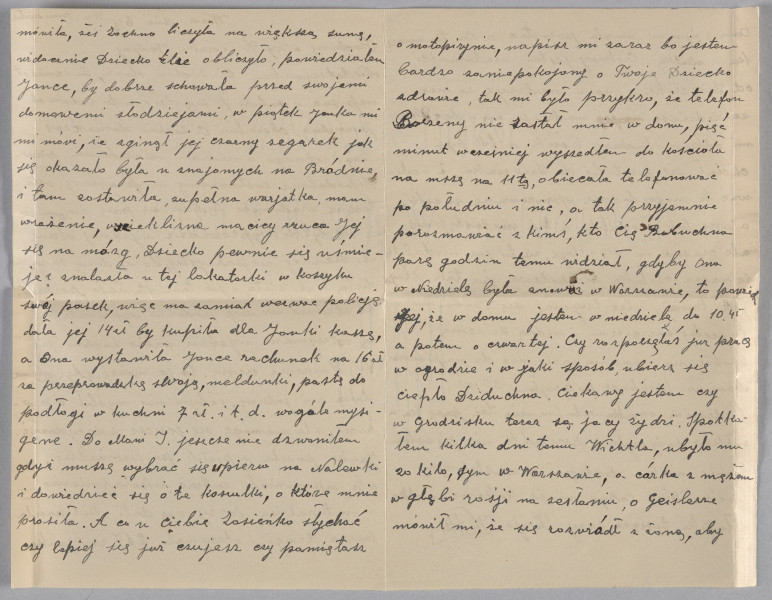 mówiła, żeś Zochno liczyła na większą sumę,
widocznie Dziecko źle obliczyło, powiedziałem
Jance, by dobrze schowała przed swojemi
domowemi złodziejami, w piątek Janka mi
mi mówi, że zginął jej czarny zegarek jak
się okazało była u znajomych na Bródnie,
i tam zostawiła, zupełna warjatka, mam
wrażenie, macicy rzuca Jej
się na mózg, Dziecko pewnie się uśmie-
je znalazła u tej lokatorki w koszyku
swój pasek, więc ma zamiar wezwać policję
dała jej 14 zł by kupiła dla Janki kaszę,
a Ona wystawiła Jance rachunek na 16 zł
za przeprowadzkę swoją, meldunki, pastę do
podłogi w kuchni 7 zł. i t. d. wogóle
Do Mani I. jeszcze nie dzwoniłem
gdyż muszę wybrać się wpierw na Nalewki
i dowiedzieć się o te koszulki, o które mnie
prosiła. A co u Ciebie Zosieńko słychać
czy lepiej się już czujesz czy pamiętasz
o napisz mi zaraz bo jestem
bardzo zaniepokojony o Twoje Dziecko
zdrowie, tak mi było przykro, że telefon
Bożeny nie zastał mnie w domu, pięć
minut wcześniej wyszedłem do kościoła
na mszę na 11tą, obiecała telefonować
po południu i nic, a tak przyjemnie
porozmawiać z kimś, kto Cię Babuchna
parę godzin temu widział, gdyby Ona
w Niedzielę była znowu w Warszawie, to powiedz
Jej, że w domu jestem w niedzielę do 10.45
a potem o czwartej. Czy rozpoczęłaś już pracę
w ogrodzie i w jaki sposób, ubieraj się
ciepło Dziduchna. Ciekawy jestem czy
w Grodzisku teraz są jacy żydzi. Spotka-
łem kilka dni temu Wichtla, ubyło mu
20 kilo, żyje w Warszawie, a córka z mężem
w głębi rosji na zesłaniu, o Geislerze
mówił mi, że się rozwiódł z żoną, aby